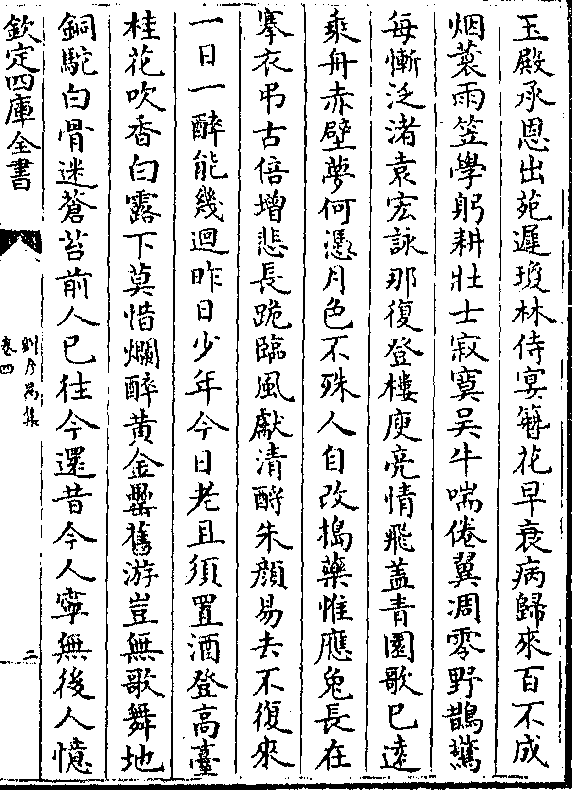 玉殿承恩出苑遲瓊林侍宴簪花早衰病歸來百不成
烟蓑雨笠學躬耕壯士寂寞吴牛喘倦翼凋零野鵲驚
每慚泛渚袁宏詠那復登樓庾亮情飛蓋青園歌已遠
乘舟赤壁夢何憑月色不殊人自改搗藥惟應兎長在
搴衣弔古倍增悲長跪臨風獻清酹朱顔易去不復來
一日一醉能幾迴昨日少年今日老且須置酒登高臺
桂花吹香白露下莫惜爛醉黄金罍舊游豈無歌舞地
銅駝白骨迷蒼苔前人已往今還昔今人寧無後人憶
欽定四庫全書
劉彦昺集
卷四
二